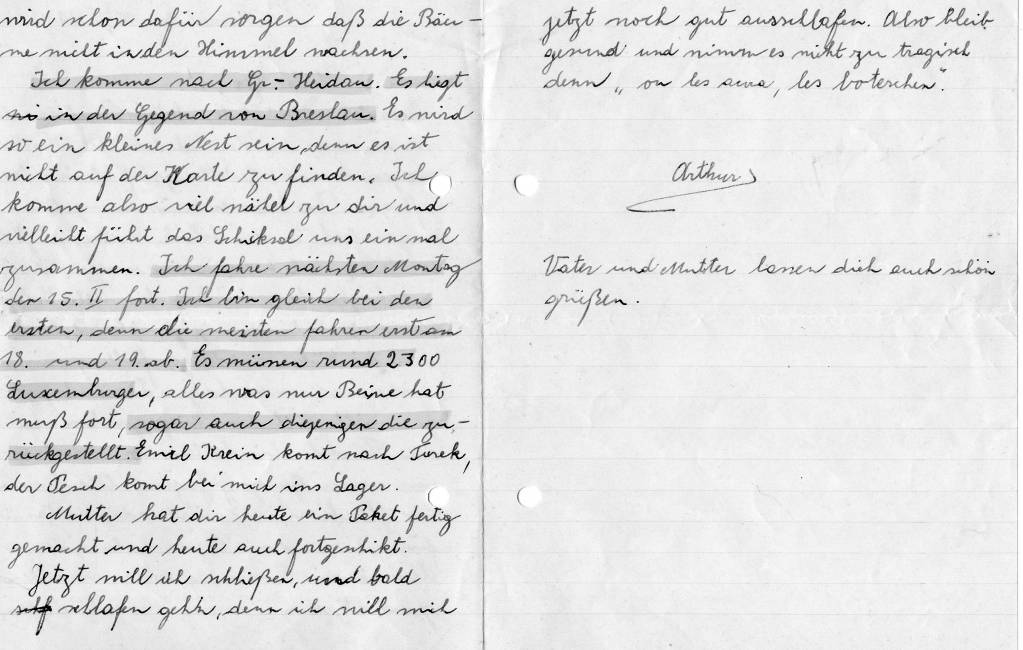 wird schon dafür sorgen daß die Bäu-
me nicht in den Himmel wachsen.
Ich komme nach Gr.- Heidau. Es ligt
in der Gegend von Breslau. Es wird
so ein kleines Nest sein, denn es ist
nicht auf der Karte zu finden. Ich
komme also viel näher zu dir und
vielleiht führt das Schiksal uns ein mal
zusammen. Ich fahre nächsten Montag
den 15. II fort. Ich bin gleich bei den
ersten, denn die meisten fahren erst am
18. und 19. ab. Es müssen rund 2300
Luxemburger, alles was nur Beine hat
muß fort, sogar auch diejenigen die zu-
rückgestellt. Emil Krein komt nach Turek,
der Pesch komt bei mich ins Lager.
Mutter hat dir heute ein Paket fertig
gemacht und heute auch fortgeschikt.
Jetzt will ich schließen, und bald
schlafen geh'n, denn ich will mich
jetzt noch gut ausschlafen. Also bleib
gesund und nimm es nicht zu tragisch
denn „ on les aura, les boterschen".
Arthur
Vater und Mutter lassen dich auch schön
grüßen.